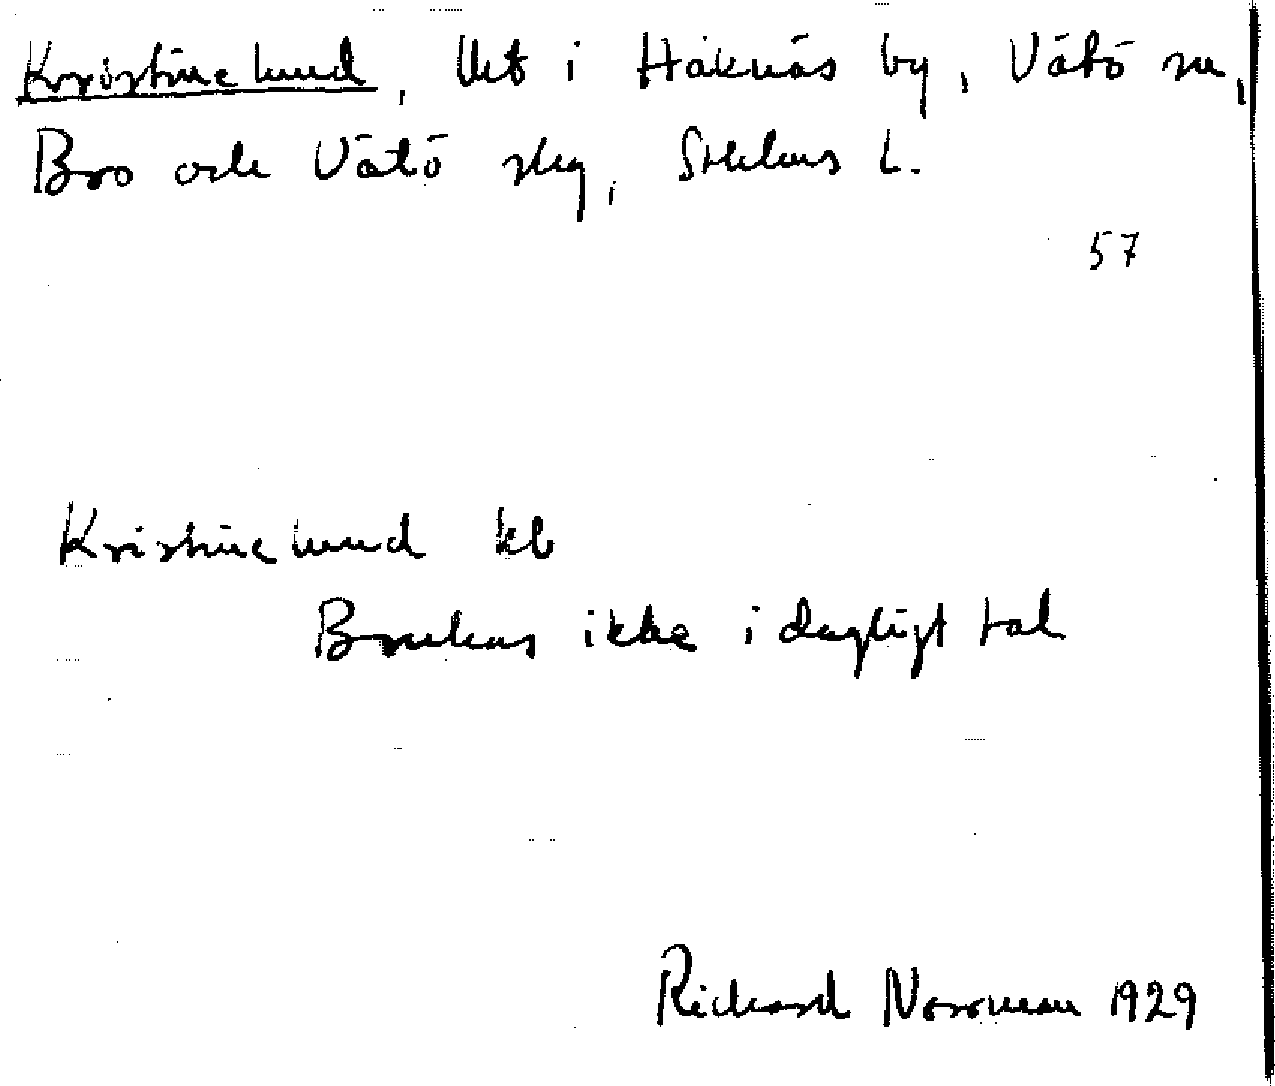 Kristinelund, Utf i Håknäs by, Vätö sn,
Bro och Vätö skg, Sthlms L.
57
Kristinelund kb
Brukas icke i dagligt tal
Rickard Norrman 1929